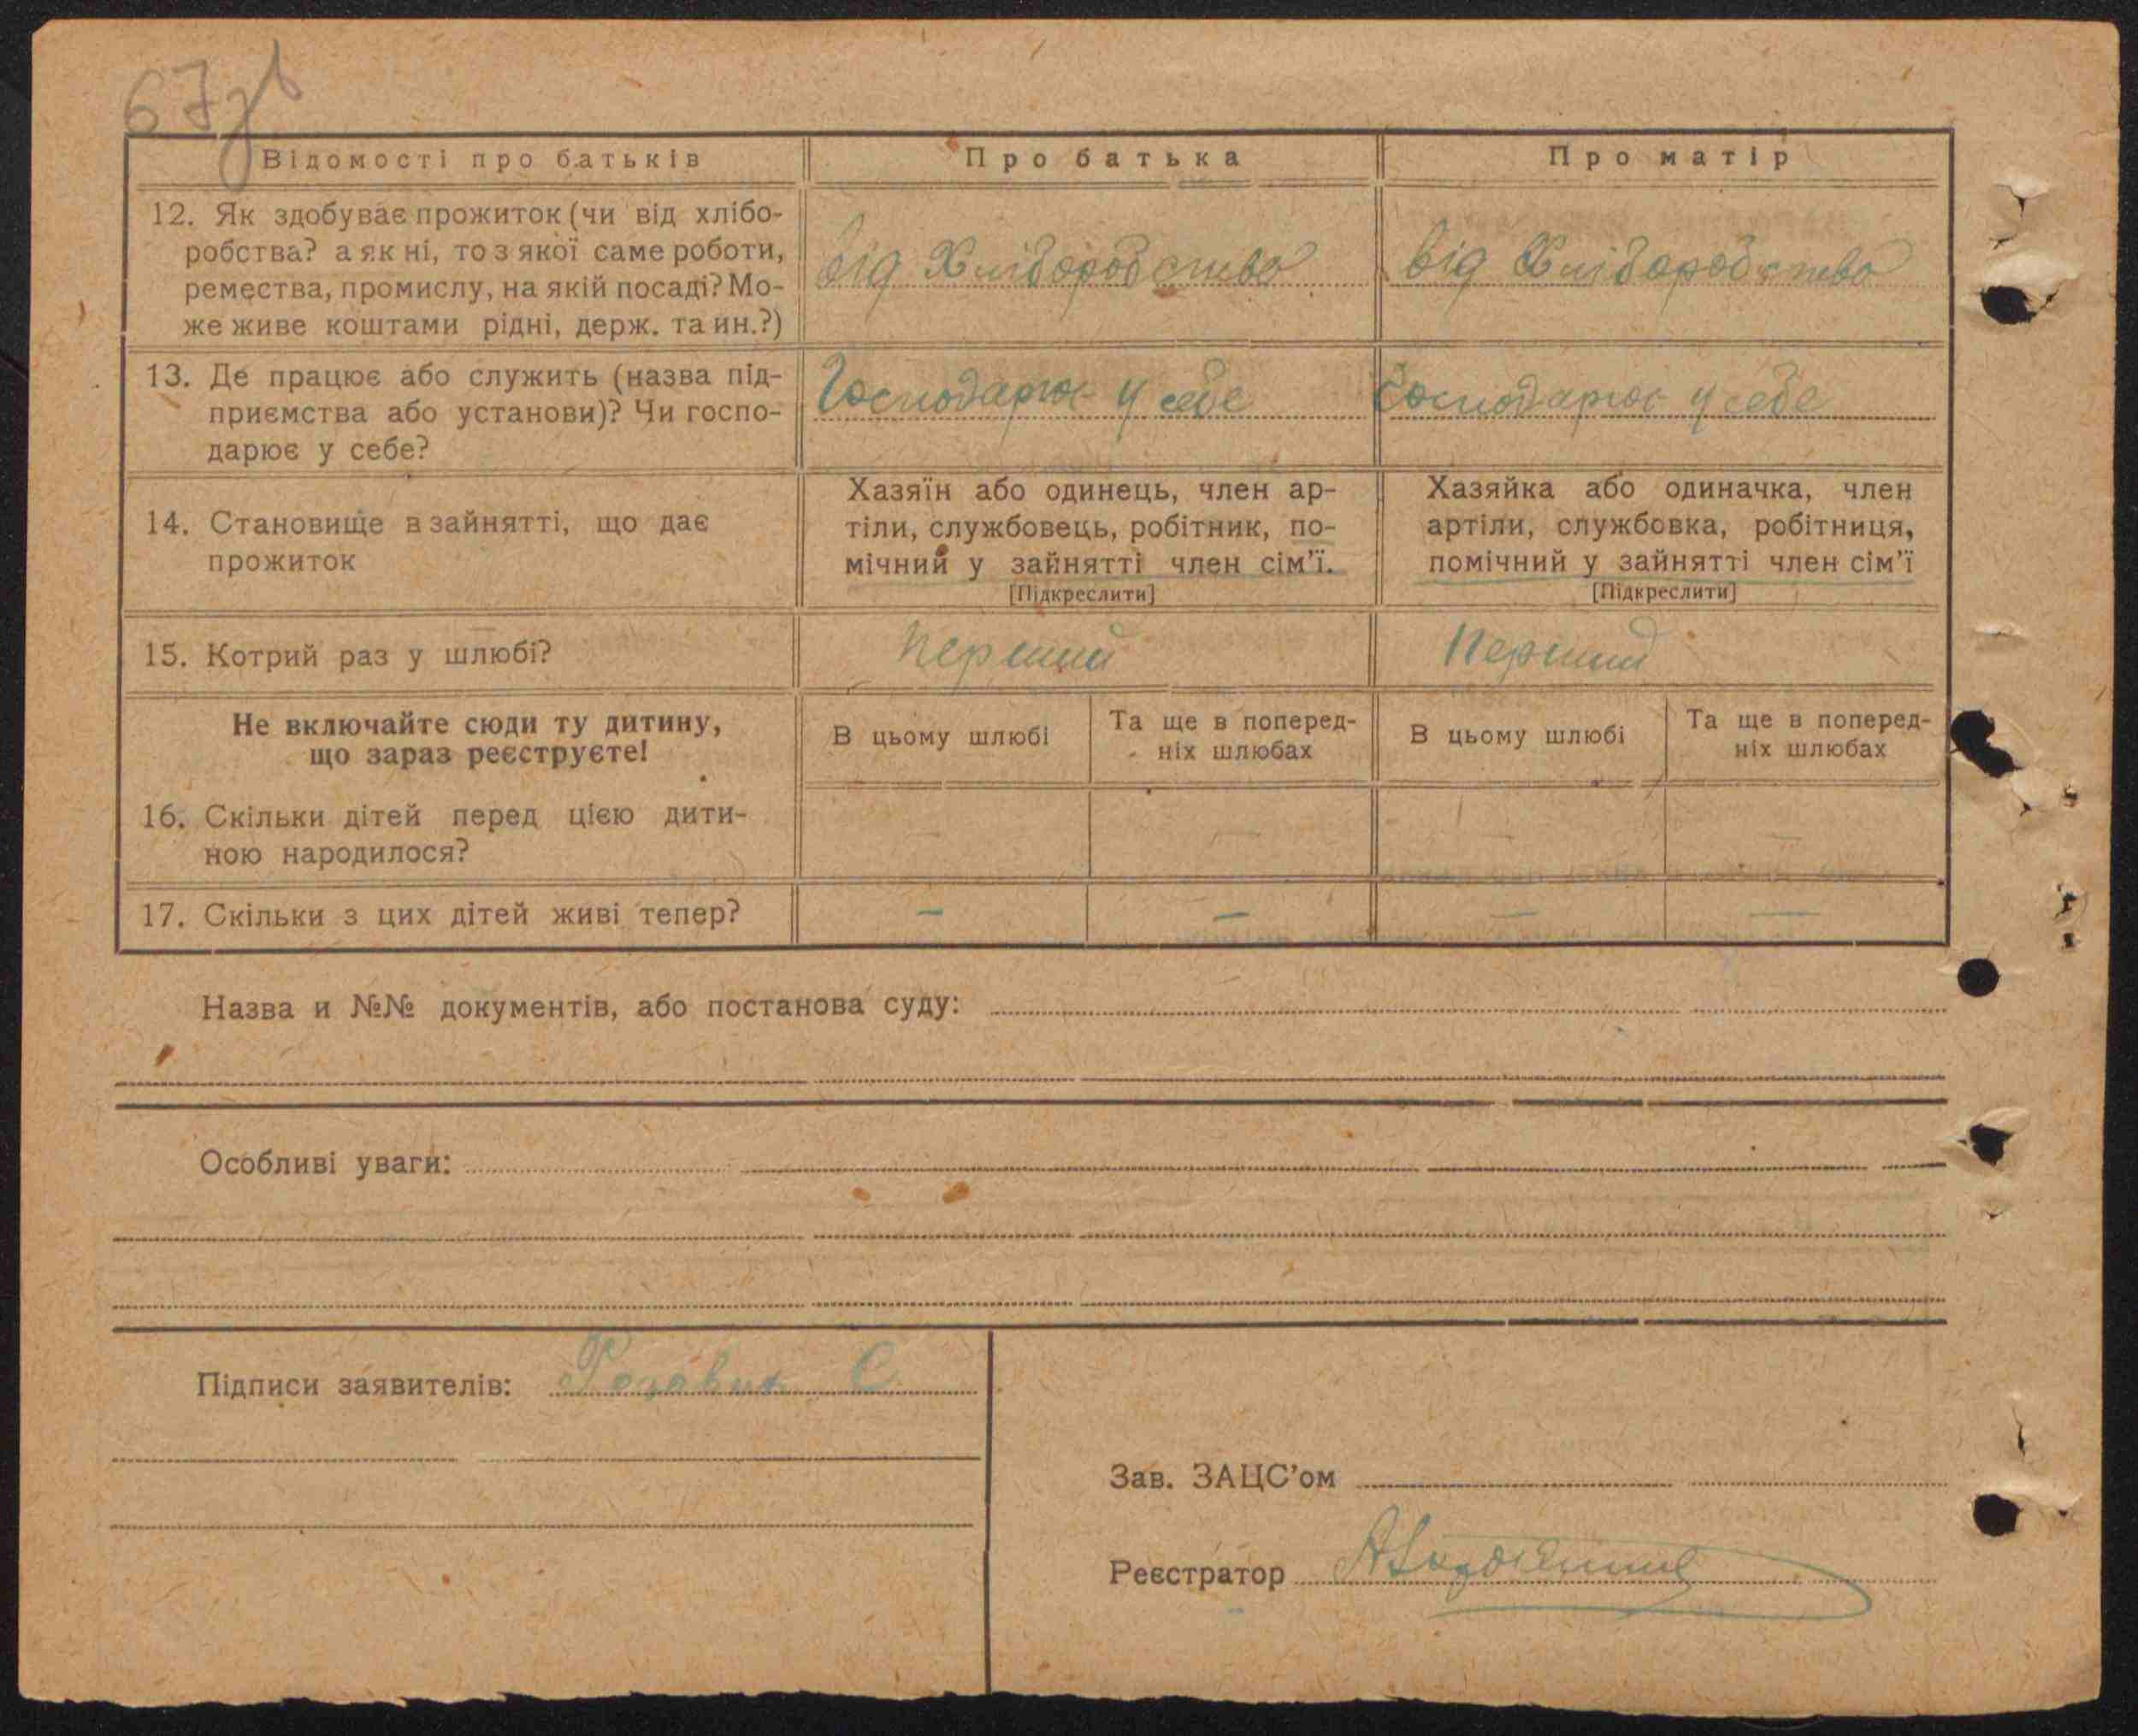 67зв
Відомості про батьків Про батька Про матір
12. Як здобуває прожиток (чи від хлібо-
робства? а як ні, то з якої саме роботи,
ремества, промислу, на якій посаді? Мо-
же живе коштами рідні, держ. та ин.?)
від Хліборобство від Хліборобство
13. Де працює або служить (назва під-
приємства або установи)? Чи госпо-
дарює у себе?
Господарює у себе Господарює у себе
14. Становище в зайнятті, що дає
прожиток
Хазяїн або одинець, член ар-
тіли, службовець, робітник, по-
мічний у зайнятті член сім’ї.
[Підкреслити]
Хазяйка або одиначка, член
артіли, службовка, робітниця,
помічний у зайнятті член сім’ї
[Підкреслити]
15. Котрий раз у шлюбі? Перший Перший
Не включайте сюди ту дитину,
що зараз реєструєте!
В цьому шлюбі
Та ще в поперед-
ніх шлюбах
В цьому шлюбі
Та ще в поперед-
ніх шлюбах
16. Скільки дітей перед цією дити-
ною народилося?
— — — —
17. Скільки з цих дітей живі тепер? — — — —
Назва и №№ документів, або постанова суду:
Особливі уваги:
Підписи заявителів: С.
Зав. ЗАЦС’ом
Реєстратор